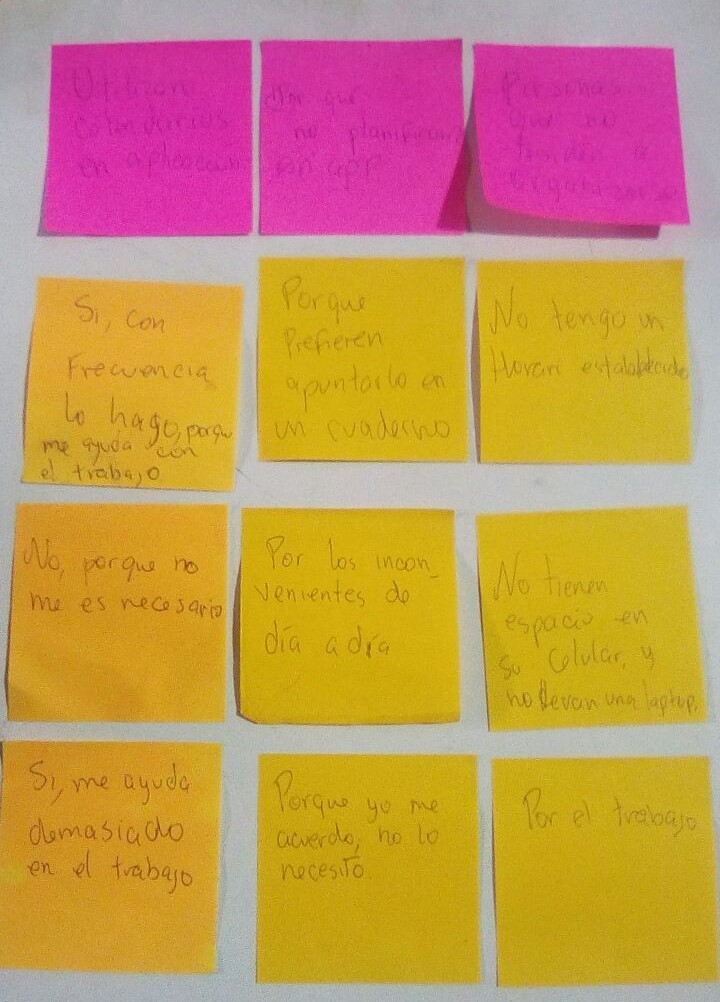 Utilizan
calendarios
en aplicación
Por que
no planifican
en app
Personas
que no
tienden a
organizarse
Si, con
Frecuencia
lo hago, porque
me ayuda con
el trabajo
Porque
Prefieren
apuntarlo en
un cuaderno
No tengo un
Horari establecido
No, porque no
me es necesario
Por los incon_
venientes de
día a día
No tienen
espacio en
su celular, y
no llevan una laptop.
Si, me ayuda
demasiado
en el trabajo
Porque yo me
acuerdo, no lo
necesito.
Por el trabajo